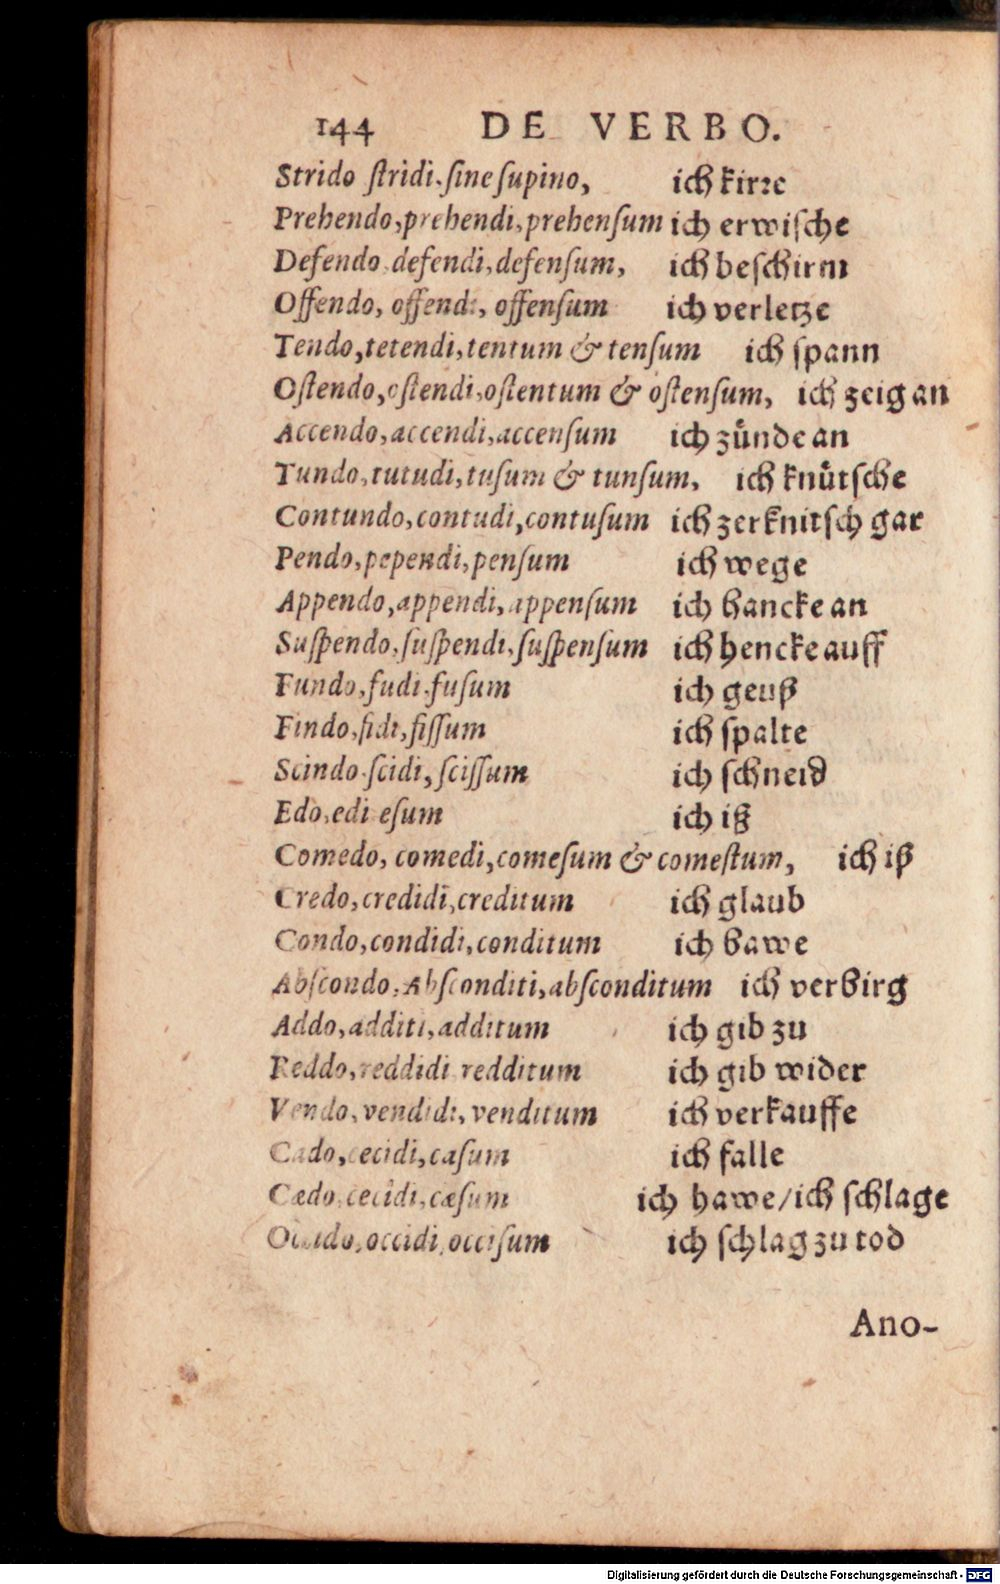 144 DE VERBO.
Strido ſtridi. ſine ſupino, ich kirꝛe
Prehendo, prehendi, prehenſum ich erwiſche
Defendo, defendi, defenſum, ich beſchirm
Offendo, offendi, offenſum ich verletze
Tendo, tetendi, tentum & tenſum ich ſpann
Oſtendo, oſtendi, oſtentum & oſtenſum, ich zeig an
Accendo, accendi, accenſum ich zuͤnde an
Tundo, tutudi, tuſum & tunſum, ich knuͤtſche
Contundo, contudi, contuſum ich zerknitſch gar
Pendo, pependi, penſum ich wege
Appendo, appendi, appenſum ich hancke an
Suſpendo, ſuſpendi, ſuſpenſum ich hencke auff
Fundo, fudi, fuſum ich geuß
Findo, fidi, fiſſum ich ſpalte
Scindo ſcidi, ſciſſum ich ſchneid
Edo, edi eſum ich iß
Comedo, comedi, comeſum & comeſtum, ich iß
Credo, credidi, creditum ich glaub
Condo, condidi, conditum ich bawe
Abſcondo, Abſconditi, abſconditum ich verbirg
Addo, additi, additum ich gib zu
Reddo, reddidi redditum ich gib wider
Vendo, vendidi, venditum ich verkauffe
Cado, cecidi, caſum ich falle
Cædo, cecidi, cæſum ich hawe/ ich ſchlage
Occido, occidi, occiſum ich ſchlag zu tod
Ano-
Digitalisierung gefördert durch die Deutsche Forschungsgemeinschaft - DFG